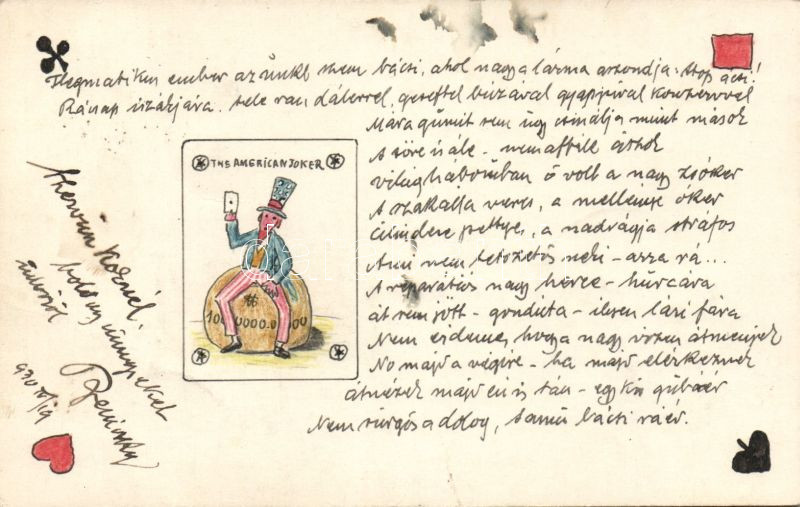 Flegmatikus ember az unkl Shem bácsi, ahol nagy a lárma aszondja: stop ácsi!
tele van dálerrel, búzával gyapjúval konzervvel
Mara gumit sem úgy csinálja mint mások
A söre is ále - nem afféle
világháborúban ő volt a nagy zsóker
A szakálla veres, a mellénye óker
Cilindere pettyes, a nadrágja stráfos
Ami nem tetszetős neki - arra rá...
A reparatiós nagy herce - hurcára
át sem jött - gondúta - ilyen lári fára
Nem érdemes, hogy a nagy vizen átmenjek
No majd a végire - ha majd elérkeznek
átnézek majd én is tán - egy kis gubáér
Nem sürgős a dolog, Samu bácsi ráér.
THE AMERICAN JOKER
$
100000.000
Kálmán
boldog ünnepeket
930